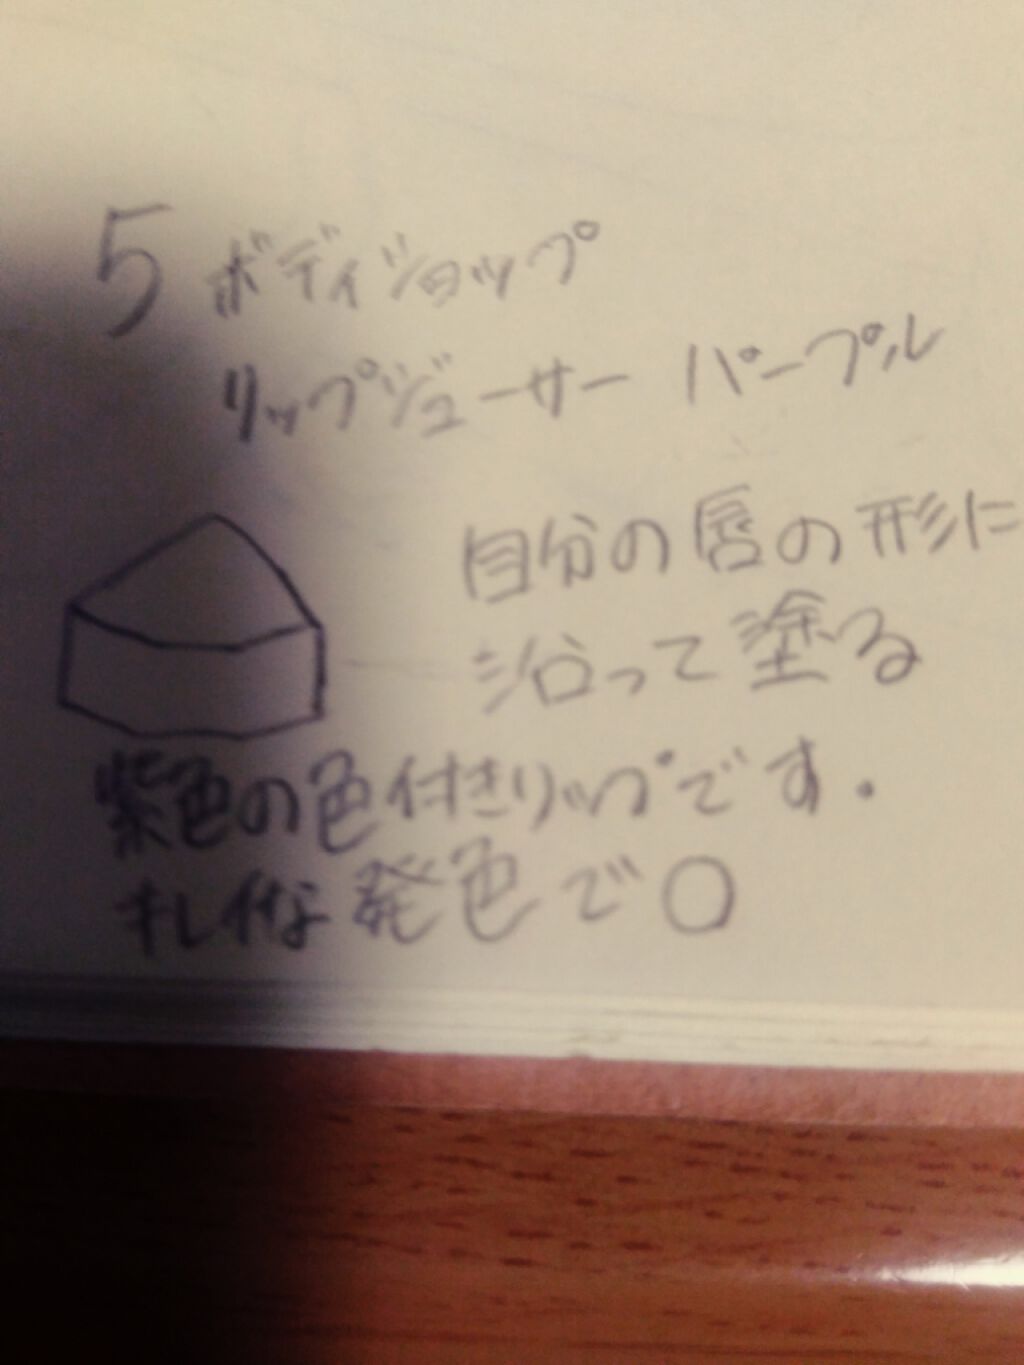 5 ボディショップ
リップジューサー パープル
自分の唇の形に
沿って塗る
紫色の色付きリップです.
キレイな発色で○